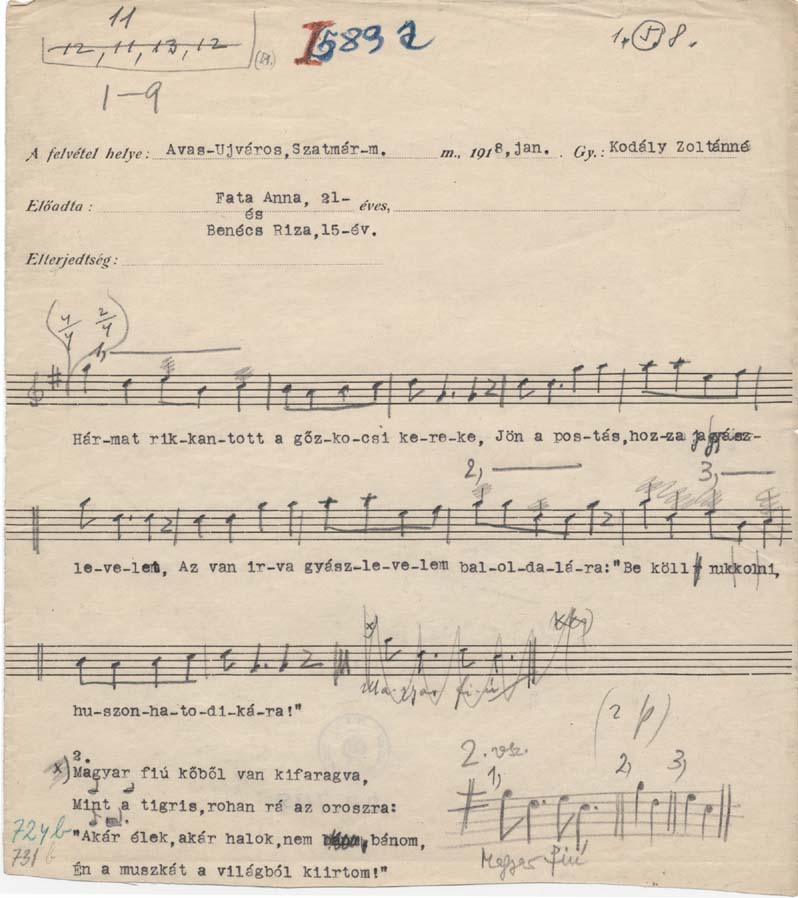 11
12, 11, 13, 12
I 589
1. 5. 8.
1-9
A felvétel helye: Avas-Ujváros, Szatmár-m. m., 1918, jan. Gy.: Kodály Zoltánné
Előadta: Fata Anna, 21- éves,
és
Benécs Riza, 15-év.
Elterjedtség:
4/4 2/4
Hár-mat rik-kan-tott a gőz-ko-csi ke-re-ke, Jön a pos-tás, hoz-za a gyász-
2, 3,
le-ve-lem, Az van ir-va gyász-le-ve-lem bal-ol-da-lá-ra: "Be köll rukkolni,
x)
Ma-gyar fi-ú
hu-szon-ha-to-di-ká-ra!"
2.
x) Magyar fiú kőből van kifaragva,
Mint a tigris, rohan rá az oroszra:
"Akár élek, akár halok, nem bánom,
Én a muszkát a világból kiirtom!"
2. vsz.
1, 2, 3,
Magyar fiú
724 b
731 b